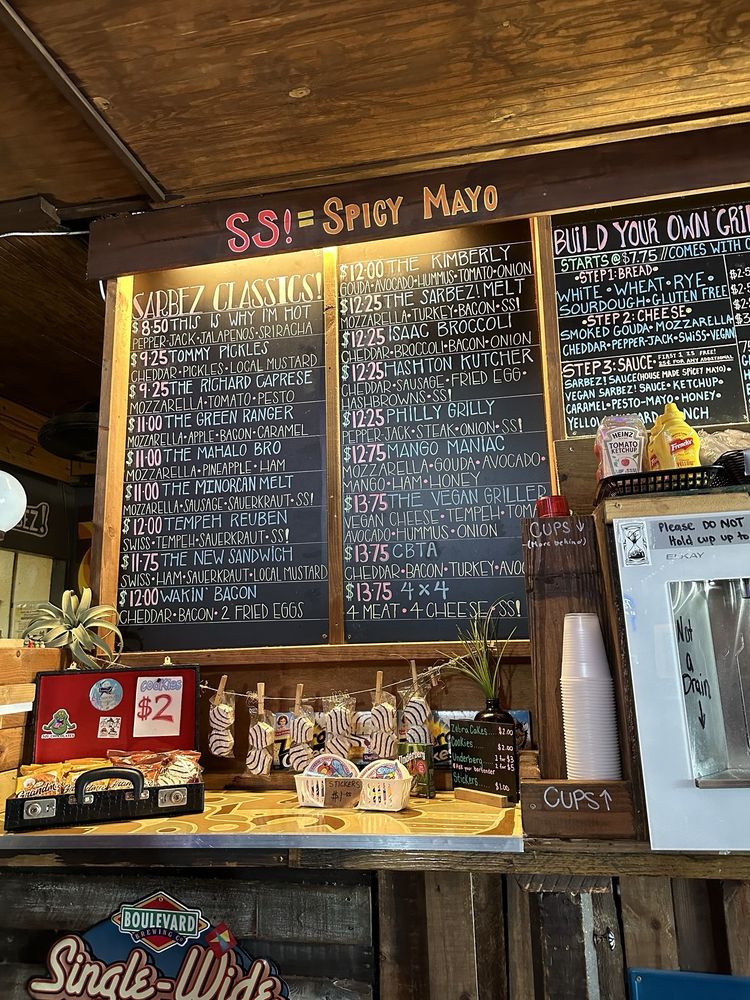 SS! = SPICY MAYO
SARBEZ CLASSICS!
$8.50 THIS IS WHY I'M HOT
PEPPER JACK • JALAPENOS • SRIRACHA
$9.25 TOMMY PICKLES
CHEDDAR • PICKLES • LOCAL MUSTARD
$9.25 THE RICHARD CAPRESE
MOZZARELLA • TOMATO • PESTO
$11.00 THE GREEN RANGER
MOZZARELLA • APPLE • BACON • CARAMEL
$11.00 THE MAHALO BRO
MOZZARELLA • PINEAPPLE • HAM
$11.00 THE MINORCAN MELT
MOZZARELLA • SAUSAGE • SAUERKRAUT • SS!
$12.00 TEMPEH REUBEN
SWISS • TEMPEH • SAUERKRAUT • SS!
$11.75 THE NEW SANDWICH
SWISS • HAM • SAUERKRAUT • LOCAL MUSTARD
$12.00 WAKIN' BACON
CHEDDAR • BACON • 2 FRIED EGGS
$12.00 THE KIMBERLY
GOUDA • AVOCADO • HUMMUS • TOMATO • ONION
$12.25 THE SARBEZ! MELT
MOZZARELLA • TURKEY • BACON • SS!
$12.25 ISAAC BROCCOLI
CHEDDAR • BROCCOLI • BACON • ONION
$12.25 HASHTON KUTCHER
CHEDDAR • SAUSAGE • FRIED EGG •
HASHBROWNS • SS!
$12.25 PHILLY GRILLY
PEPPER JACK • STEAK • ONION • SS!
$12.75 MANGO MANIAC
MOZZARELLA • GOUDA • AVOCADO •
MANGO • HAM • HONEY
$13.75 THE VEGAN GRILLED
VEGAN CHEESE • TEMPEH • TOMA
AVOCADO • HUMMUS • ONION
$13.75 CBTA
CHEDDAR • BACON • TURKEY • AVO
$13.75 4x4
4 MEAT • 4 CHEESE • SS!
BUILD YOUR OWN GRI
STARTS @ $7.75 // COMES WITH
• STEP 1: BREAD •
WHITE • WHEAT • RYE •
SOURDOUGH • GLUTEN FREE
• STEP 2: CHEESE •
SMOKED GOUDA • MOZZARELLA
CHEDDAR • PEPPER-JACK • SWISS • VEGAN
STEP 3: SAUCE • FIRST 1 IS FREE!
25¢ FOR ANY ADDITIONAL
SARBEZ! SAUCE (HOUSE MADE SPICEY MAYO) •
VEGAN SARBEZ! SAUCE • KETCHUP •
CARAMEL • PESTO • MAYO • HONEY •
HEINZ
TOMATO
KETCHUP
French's
CUPS ↓
(More behind)
CUPS ↑
Please DO NOT
Hold cup up to
ELKAY
Not
a
Drain
↓
COOKIES
$2
Zebra Cakes... $2.00
Cookies $2.00
Underberg 1 for $3
2 for $5
*Ask your bartender
Stickers $1.00
STICKERS
BOULEVARD
BREWING CO
Single-Wide